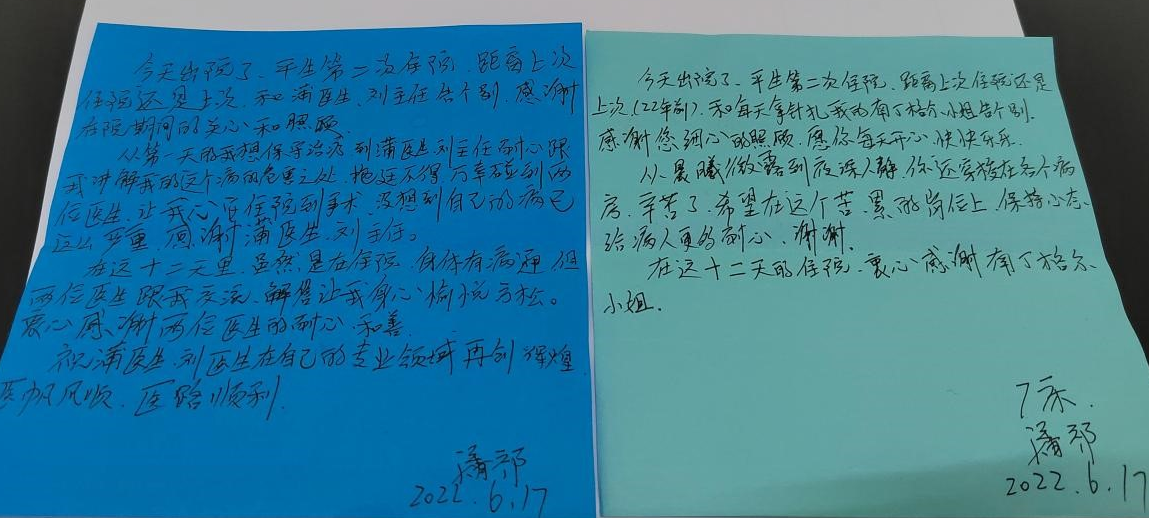 今天出院了、平生第二次住院、距离上次
住院还是上次、和蒲医生、刘主任告个别、感谢
在院期间的关心和照顾、
从第一天的我想保守治疗到蒲医生刘主任耐心跟
我讲解我的这个病的危害之处、拖延不得、万幸碰到两
位医生、让我心甘住院到手术、没想到自己的病已
这么严重、感谢蒲医生、刘主任。
在这十二天里、虽然是在住院、身体有病理、但
两位医生跟我交流、解答让我身心愉悦、放松。
衷心感谢两位医生的耐心、和善、
祝蒲医生、刘医生在自己的专业领域再创辉煌
医帆风顺、医路顺利、
蒲郊
2022.6.17
今天出院了、平生第二次住院、距离上次住院还是
上次、(22年前)、和每天拿针扎我的南丁格尔小姐告个别。
感谢您细心的照顾、愿你每天开心、快快乐乐、
从晨曦微露到夜深人静、你还穿梭在各个病
房、辛苦了、希望在这个苦、累的岗位上、保持心态、
给病人更多的耐心、谢谢、
在这十二天的住院、衷心感谢南丁格尔
小姐、
7床、
蒲郊
2022.6.17